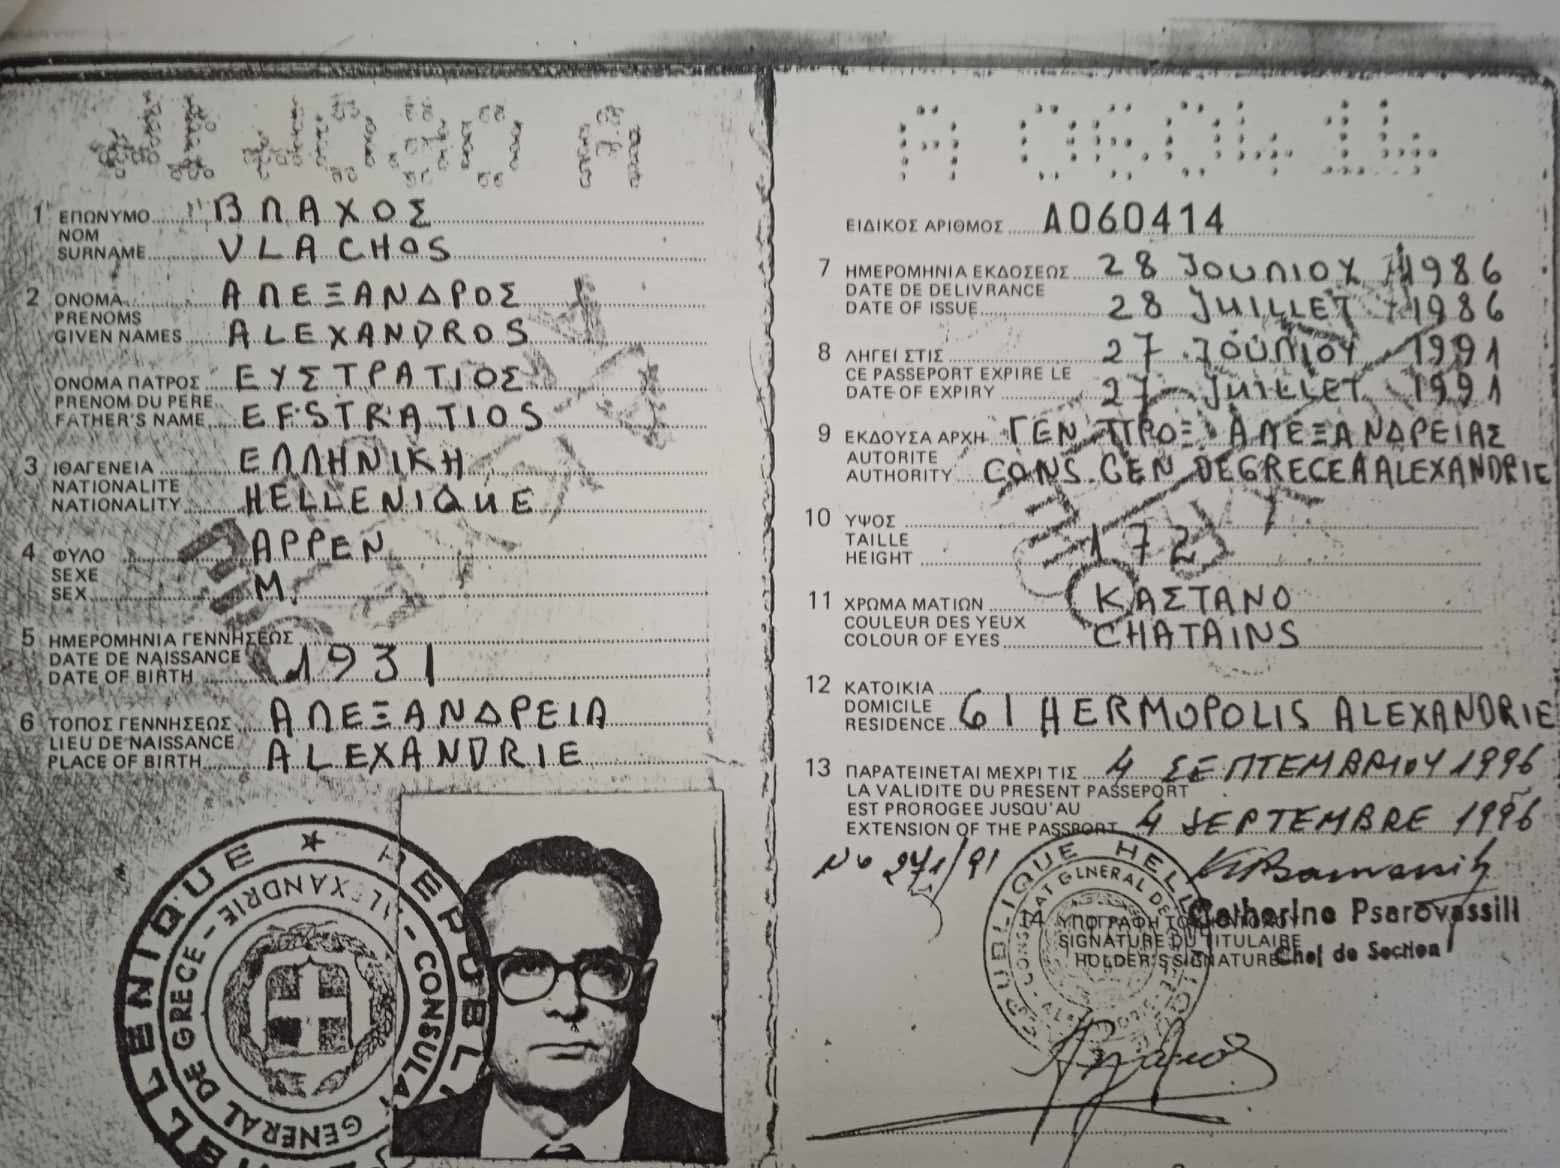 A 060414
1 ΕΠΩΝΥΜΟ ΒΛΑΧΟΣ
NOM
SURNAME VLACHOS
2 ΟΝΟΜΑ ΑΛΕΞΑΝΔΡΟΣ
PRENOMS
GIVEN NAMES ALEXANDROS
ΟΝΟΜΑ ΠΑΤΡΟΣ ΕΥΣΤΡΑΤΙΟΣ
PRENOM DU PERE
FATHER'S NAME EFSTRATIOS
3 ΙΘΑΓΕΝΕΙΑ ΕΛΛΗΝΙΚΗ
NATIONALITE
NATIONALITY HELLENIQUE
4 ΦΥΛΟ ΑΡΡΕΝ
SEXE
SEX M.
5 ΗΜΕΡΟΜΗΝΙΑ ΓΕΝΝΗΣΕΩΣ
DATE DE NAISSANCE
DATE OF BIRTH 1931
6 ΤΟΠΟΣ ΓΕΝΝΗΣΕΩΣ ΑΛΕΞΑΝΔΡΕΙΑ
LIEU DE NAISSANCE
PLACE OF BIRTH ALEXANDRIE
REPUBLIQUE HELLENIQUE
CONSULAT GENERAL DE GRECE - ALEXANDRIE
A 060414
ΕΙΔΙΚΟΣ ΑΡΙΘΜΟΣ A060414
7 ΗΜΕΡΟΜΗΝΙΑ ΕΚΔΟΣΕΩΣ 28 ΙΟΥΛΙΟΥ 1986
DATE DE DELIVRANCE
DATE OF ISSUE 28 JUILLET 1986
8 ΛΗΓΕΙ ΣΤΙΣ 27 ΙΟΥΛΙΟΥ 1991
CE PASSEPORT EXPIRE LE
DATE OF EXPIRY 27 JUILLET 1991
9 ΕΚΔΟΥΣΑ ΑΡΧΗ ΓΕΝ ΠΡΟΞ. ΑΛΕΞΑΝΔΡΕΙΑΣ
AUTORITE
AUTHORITY CONS. GEN. DE GRECE A ALEXANDRIE
10 ΥΨΟΣ
TAILLE
HEIGHT 172
11 ΧΡΩΜΑ ΜΑΤΙΩΝ ΚΑΣΤΑΝΟ
COULEUR DES YEUX
COLOUR OF EYES CHATAINS
12 ΚΑΤΟΙΚΙΑ
DOMICILE
RESIDENCE 61 HERMOPOLIS ALEXANDRIE
13 ΠΑΡΑΤΕΙΝΕΤΑΙ ΜΕΧΡΙ ΤΙΣ 4 ΣΕΠΤΕΜΒΡΙΟΥ 1996
LA VALIDITE DU PRESENT PASSEPORT
EST PROROGEE JUSQU'AU
EXTENSION OF THE PASSPORT 4 SEPTEMBRE 1996
No 271/91
Catherine Psarovassili
Chef de Section
14 ΥΠΟΓΡΑΦΗ
SIGNATURE DU TITULAIRE
HOLDER'S SIGNATURE